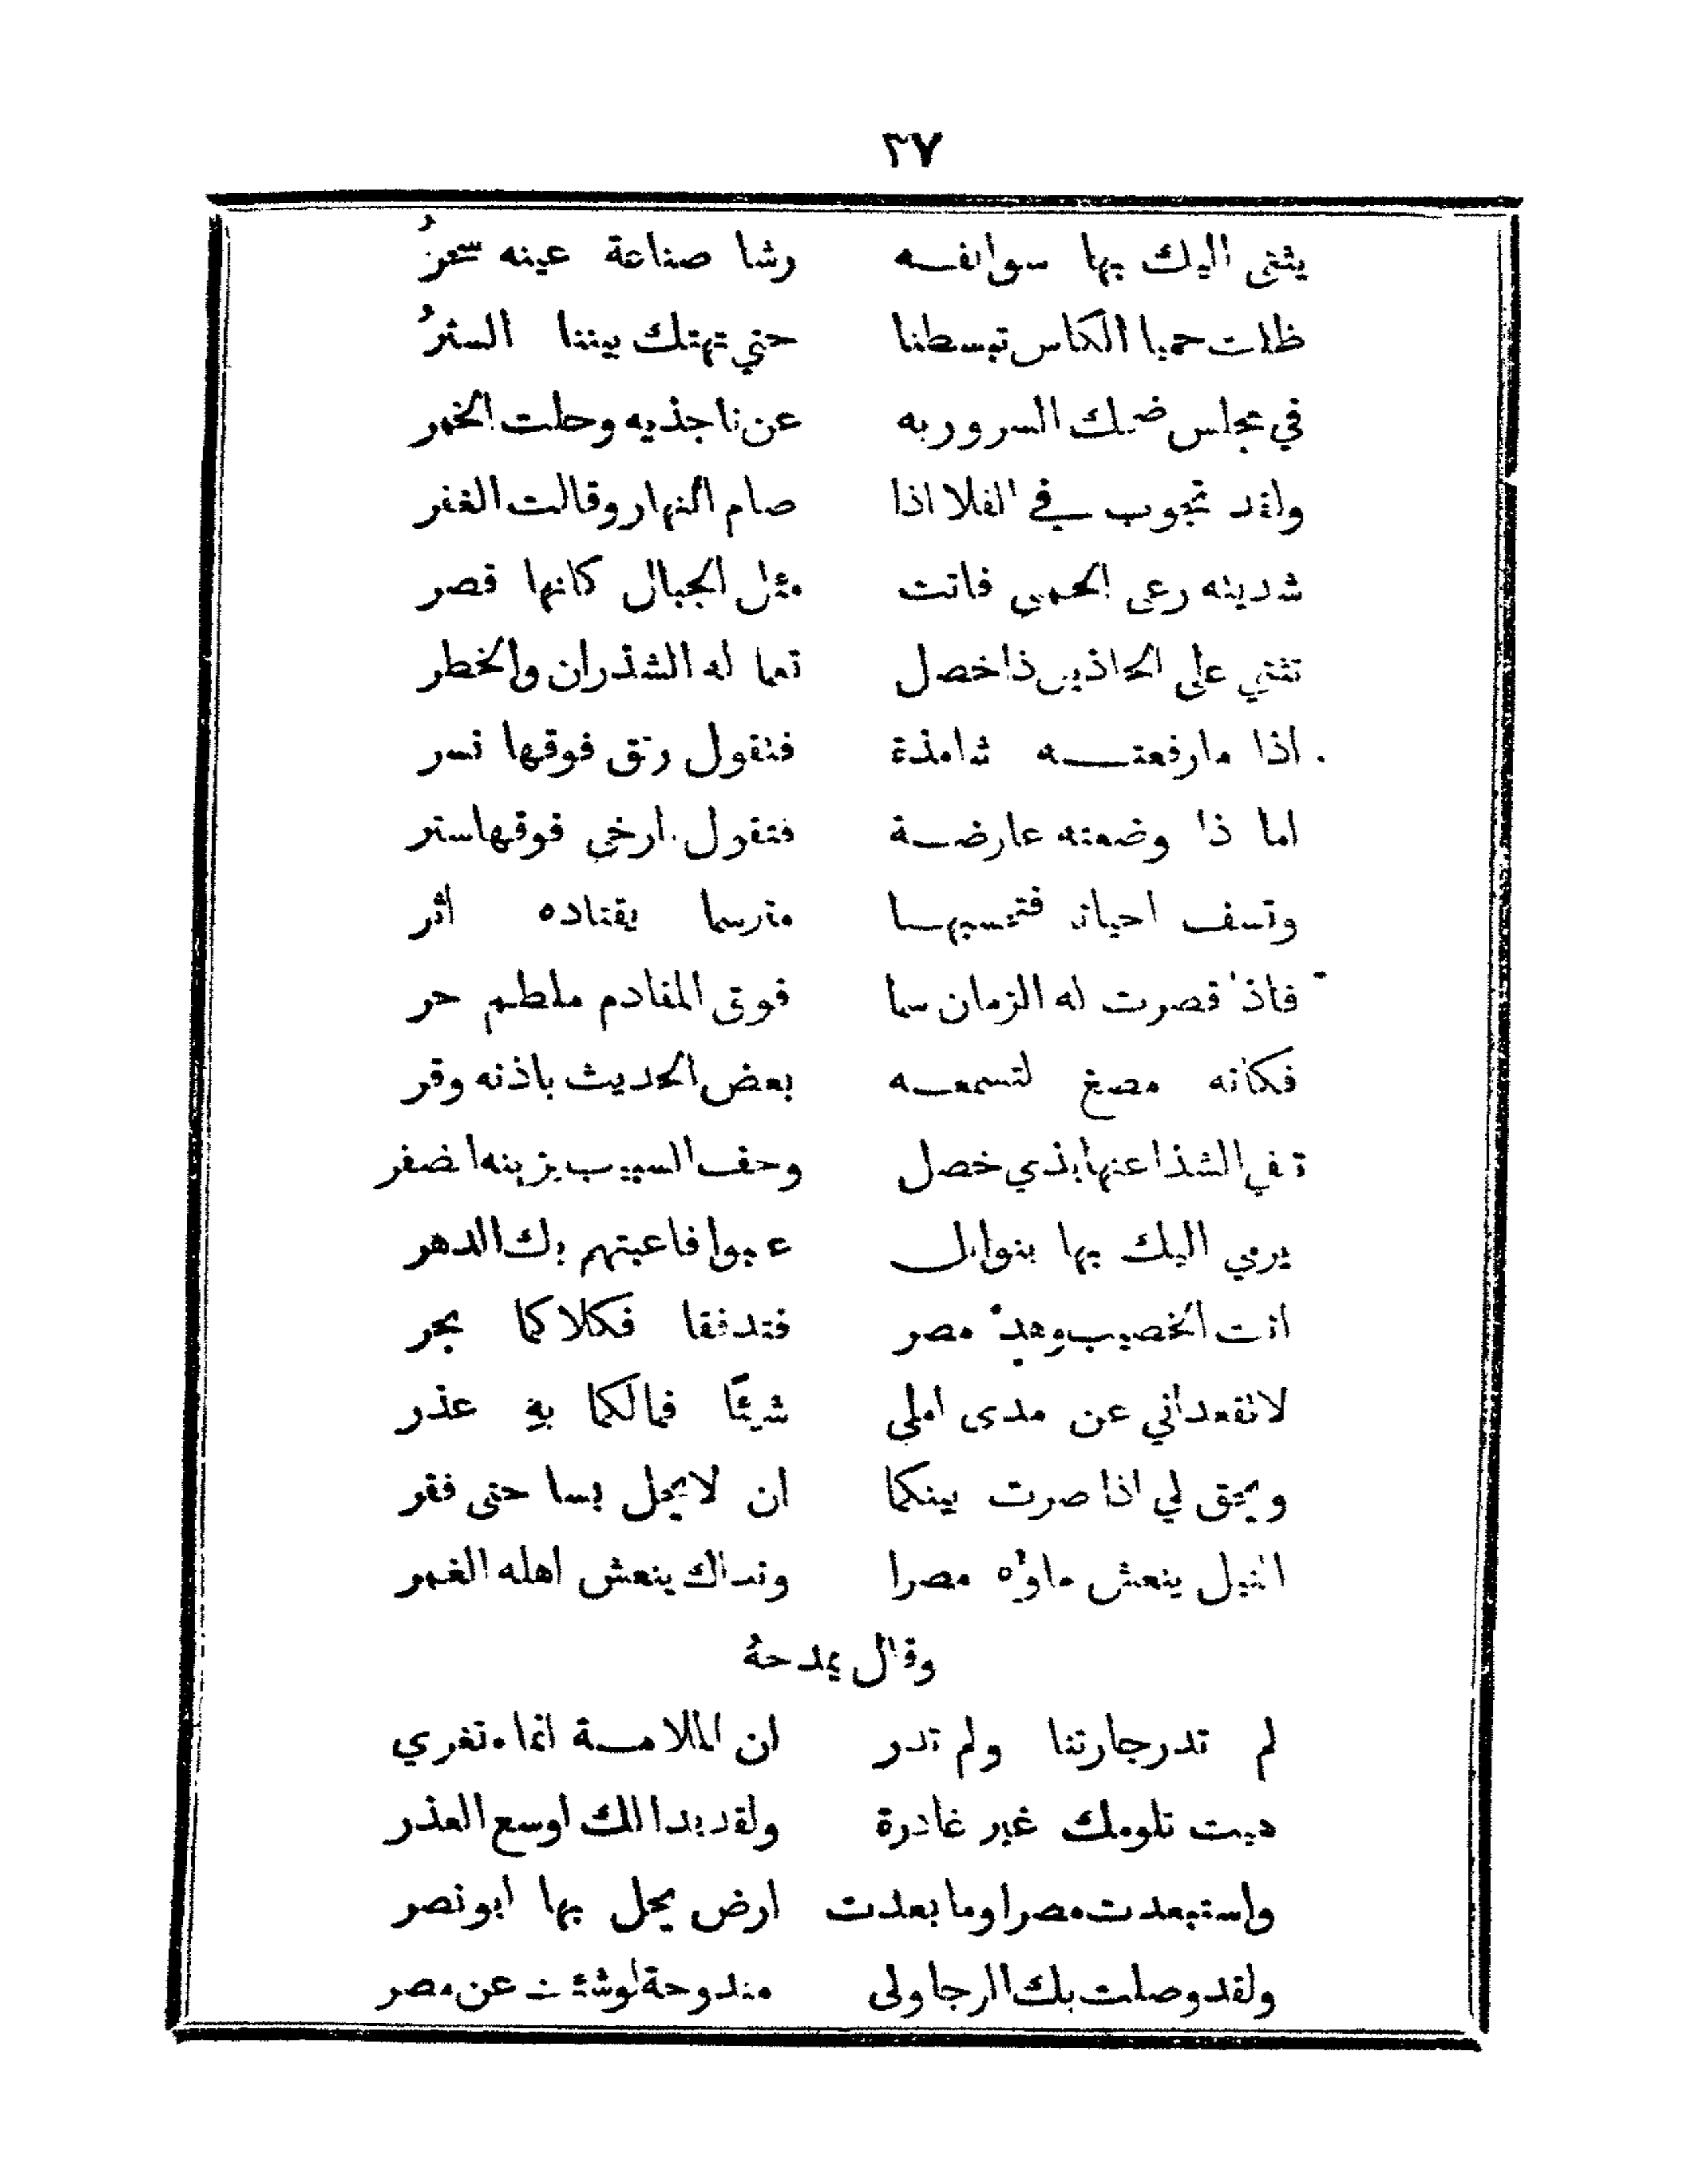 ٣٧
يثنى اليك بها سوالفـــه رشا صناعة عينه سحرُ
ظلت حميا الكاس تبسطنا حتي تهتك بيننا السترُ
في مجلس ضحك السرور به عن ناجذيه وحلت الخمر
ولقد تجوب في الفلا اذا صام النهار وقالت العفر
شدنيه رعى الحمى فاتت مثل الجبال كانها قصر
تثني على الحاذين ذا خصل تعما له الشذران والخطر
اذا ما رفعتـــه شامذة فتقول رنق فوقها نسر
اما ذا وضعته عارضـة فتقول ارخى فوقها ستر
وتسف احيانا فتحسبهـا مترسما يقتاده اثر
فاذا قصرت له الزمان سما فوق المقادم ملطم حر
فكانه مصغ لتسمعـه بعض الحديث باذنه وقر
تنفي الشذا عنها بذي خصل وحف السبيب يزينه الضفر
يرمي اليك بها بنو امل عتبوا فاعبتهم بك الدهر
انت الخصيب وهذه مصر فتدفقا فكلا كما بحر
لا تقعداني عن مدى املي شيئًا فما لكما بهِ عذر
ويحق لي اذا صرت بينكما ان لا يحل بسا حتى فقر
النيل ينعش ماوُه مصرا ونداك ينعش اهله الغمر
وقال يمدحهُ
لم تدر جارتنا ولم تدر ان الملامـة انما تغري
هبت تلومك غير غادرة ولقد بدا لك اوسع العذر
واستبعدت مصرا وما بعدت ارض يحل بها ابو نصر
ولقد وصلت بك الرجا ولى مندوحة لو شئت عن مصر